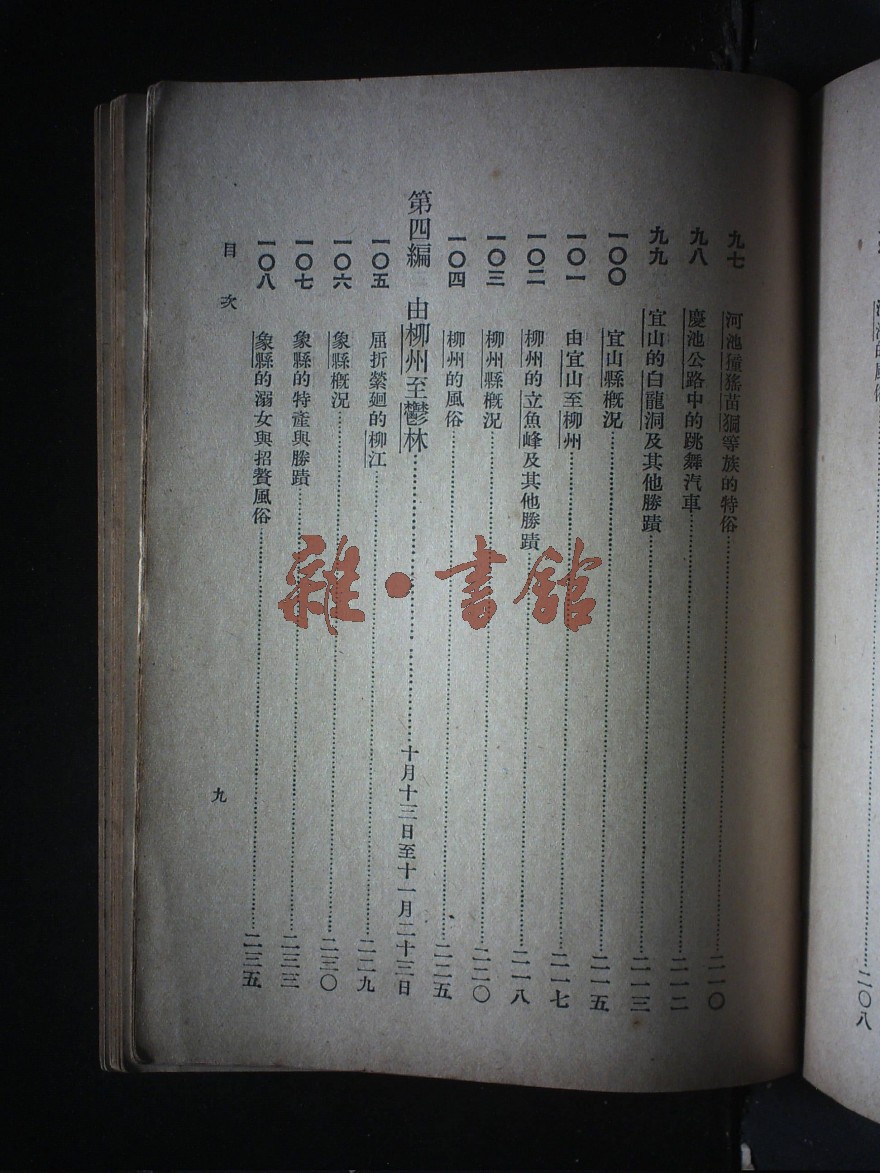 九七 河池獞猺苗狪等族的特俗 二一〇
九八 慶池公路中的跳舞汽車 二一二
九九 宜山的白龍洞及其他勝蹟 二一三
一〇〇 宜山縣概況 二一五
一〇一 由宜山至柳州 二一七
一〇二 柳州的立魚峰及其他勝蹟 二一八
一〇三 柳州縣概況 二二〇
一〇四 柳州的風俗 二二五
第四編 由柳州至鬱林 十月十三日至十一月二十三日
一〇五 屈折縈廻的柳江 二二九
一〇六 象縣概況 二三〇
一〇七 象縣的特產與勝蹟 二三三
一〇八 象縣的溺女與招贅風俗 二三五
目次
九
雜·書館
的風俗 二〇八